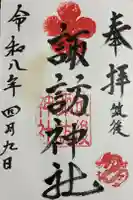 奉拝
筑後
諏訪神社
令和八年四月九日